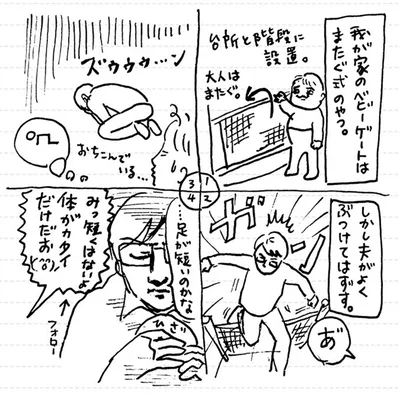 我が家のベビーゲートは
またぐ式のやつ。
台所と階段に
設置。
大人は
またぐ。
1
2
3
4
しかし夫がよく
ぶつけてはずす。
あ゛
ズウウウ…ン
おちこんで
いる…
…足が短いのかな
ひざ
みっ短くはないよ
体がカタイ
だけだお
フォロー